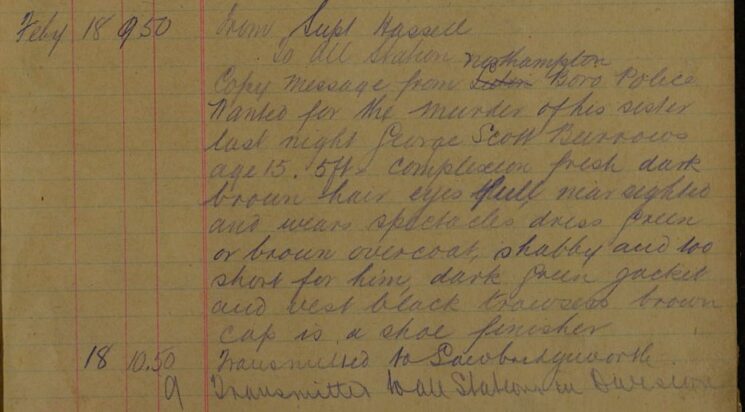 Feby 18 9.50 From Supt Hassell
To all Station
Northampton
Copy Message from Boro Police
Wanted for the Murder of his sister
last night George Scott Burrows
age 15. 5ft complexion fresh dark
brown hair eyes full near sighted
and wears spectacles dress green
or brown overcoat, shabby and too
short for him, dark green jacket
and vest black trowsers brown
cap is a shoe finisher
18 10.50 Transmitted to Sawbridgeworth
9 Transmitted to all Stations in Division